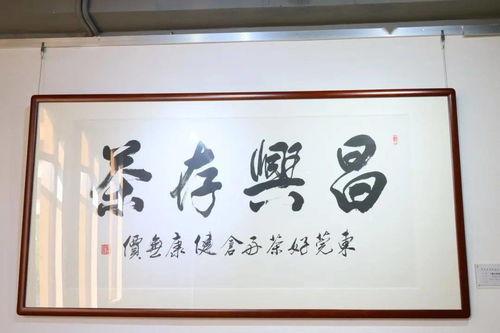 昌興存茶
東莞好茶子倉健康無價